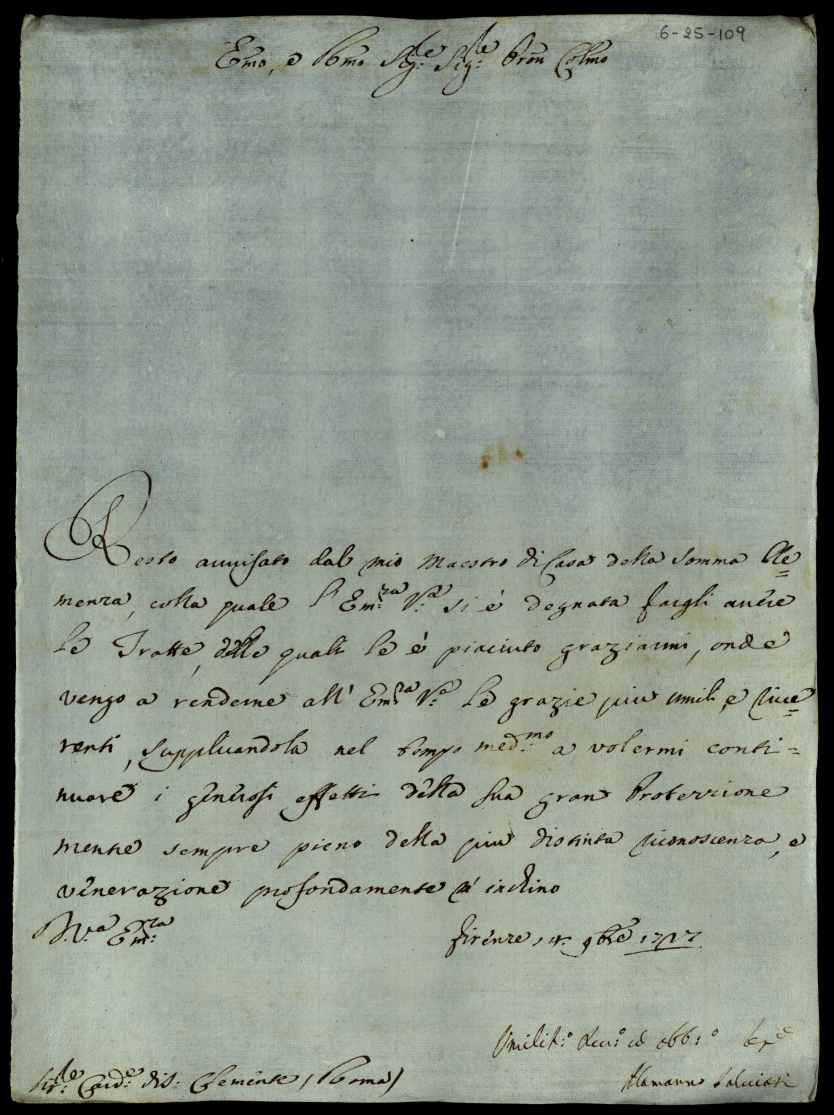 6-25-109
Emo, e Rmo Sig.re Sig.re Pron Colmo
Resto avvisato dal mio Maestro di Casa della somma Cle=
menza, colla quale l'Em.za V.a si è degnata fargli avere
le Tratte, delle quali le è piaciuto graziarmi, onde
vengo a renderne all' Em.za V.a le grazie più umili, e rive=
renti, supplicandola nel tempo med.mo a volermi conti=
nuare i generosi effetti della sua gran Protezzione
mentre sempre pieno della più distinta riconoscenza, e
venerazione profondamente m'inchino
D. V.a Em.za
Firenze 14. 9bre 1727
Umilis.o Dev.o ed obb.o Ser.e
Alamanno Salviati
Sig.re Card.e di S. Clemente (Roma)